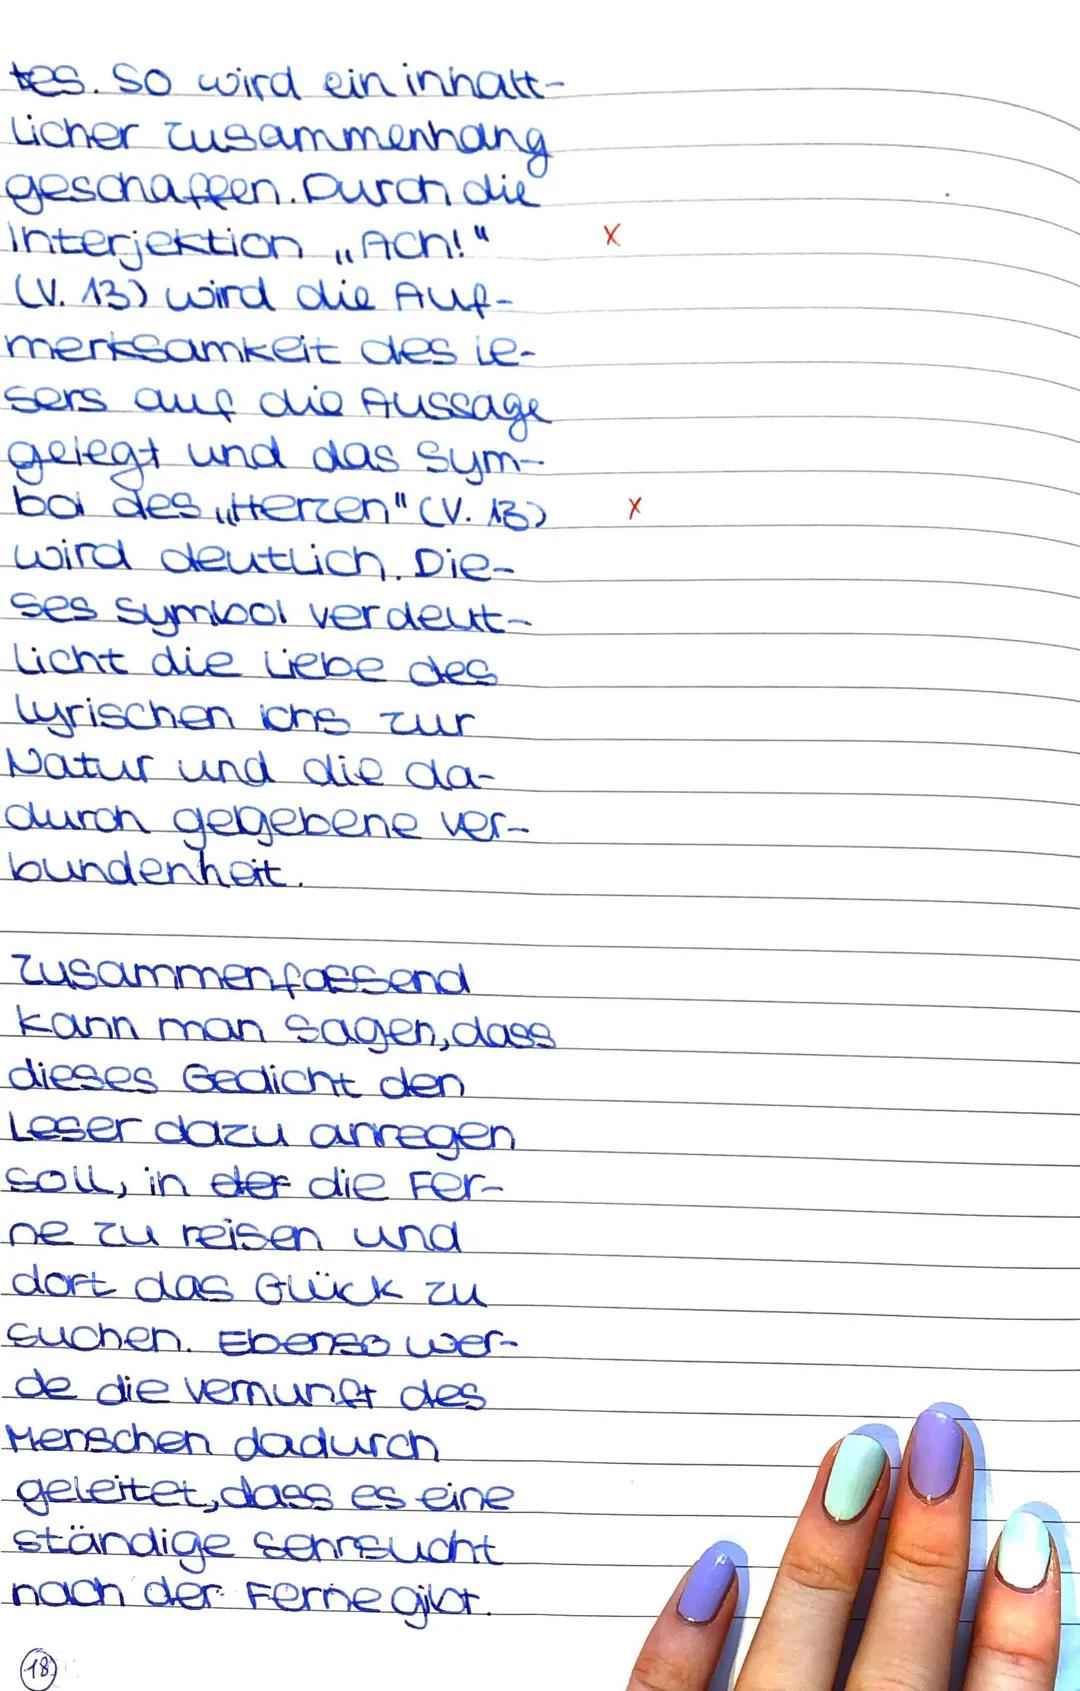 tes. So wird ein inhalt-
licher Zusammenhang
geschaffen. Durch die
Interjektion „Ach!"
(V. 13) wird die Auf-
merksamkeit des Le-
sers auf die Aussage
gelegt und das Sym-
bol des „Herzen" (V. 13)
wird deutlich. Die-
ses Symbol verdeut-
licht die Liebe des
lyrischen Ichs zur
Natur und die da-
durch gegebene Ver-
bundenheit.
Zusammenfassend
kann man sagen, dass
dieses Gedicht den
Leser dazu anregen
soll, in der die Fer-
ne zu reisen und
dort das Glück zu
suchen. Ebenso wer-
de die Vernunft des
Menschen dadurch
geleitet, dass es eine
ständige Sehnsucht
nach der Ferne gibt.
18